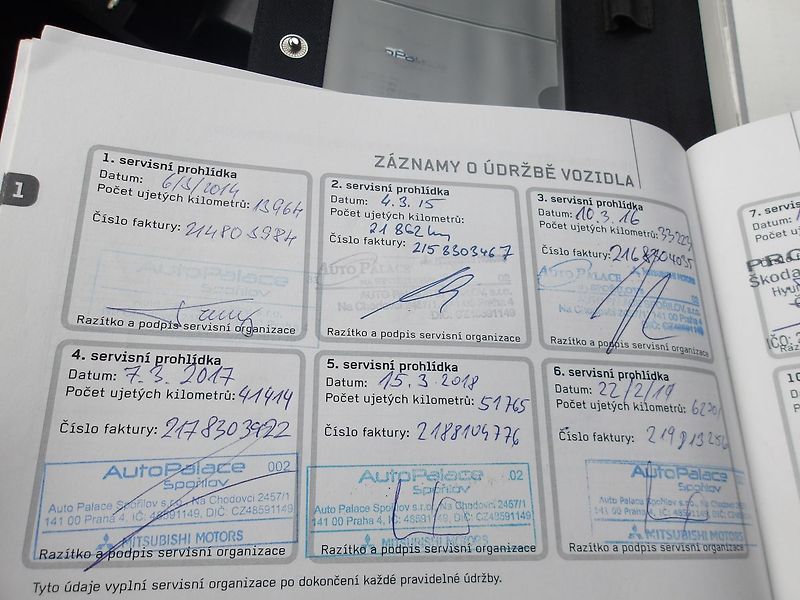 ZÁZNAMY O ÚDRŽBĚ VOZIDLA
1
1. servisní prohlídka
Datum: 6/3/2014
Počet ujetých kilometrů: 13964
Číslo faktury: 214803984
AutoPalace
Spořilov
Razítko a podpis servisní organizace
2. servisní prohlídka
Datum: 4.3.15
Počet ujetých kilometrů:
21862 km
Číslo faktury: 2158303467
AUTO PALACE
Razítko a podpis servisní organizace
3. servisní prohlídka
Datum: 10.3.16
Počet ujetých kilometrů: 33223
Číslo faktury: 2168304035
AUTO PALACE
Razítko a podpis servisní organizace
4. servisní prohlídka
Datum: 7.3.2017
Počet ujetých kilometrů: 41414
Číslo faktury: 2178303922
AutoPalace 002
Spořilov
Auto Palace Spořilov s.r.o., Na Chodovci 2457/1
141 00 Praha 4, IČ: 48591149, DIČ: CZ48591149
MITSUBISHI MOTORS
Razítko a podpis servisní organizace
5. servisní prohlídka
Datum: 15.3.2018
Počet ujetých kilometrů: 51765
Číslo faktury: 2188104776
AutoPalace 02
Spořilov
Auto Palace Spořilov s.r.o., Na Chodovci 2457/1
141 00 Praha 4, IČ: 48591149, DIČ: CZ48591149
MITSUBISHI MOTORS
Razítko a podpis servisní organizace
6. servisní prohlídka
Datum: 22/2/19
Počet ujetých kilometrů:
Číslo faktury:
AutoPalace
Spořilov
MITSUBISHI MOTORS
Razítko a podpis servisní organizace
Tyto údaje vyplní servisní organizace po dokončení každé pravidelné údržby.
7. servis
Datum:
Počet
Škoda
10